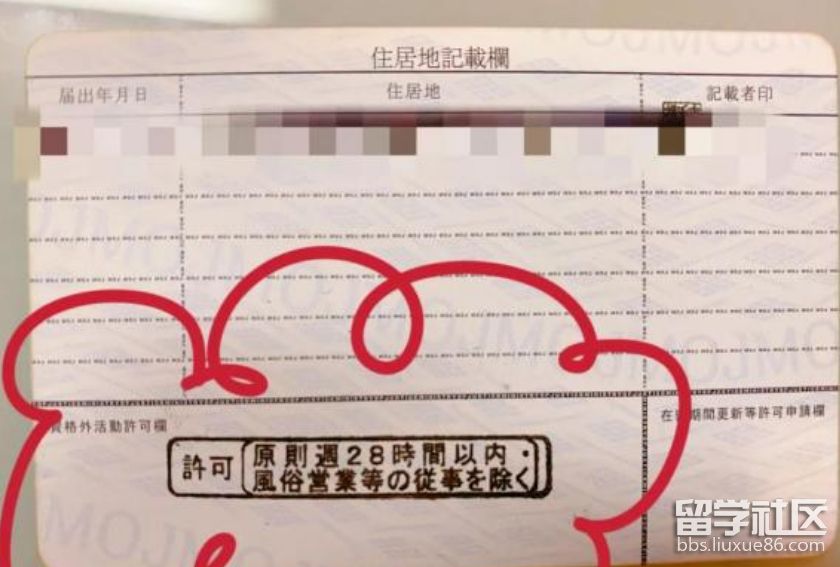 住居地記載欄
届出年月日 住居地 記載者印
資格外活動許可欄 在留期間更新等許可申請欄
許可 原則週28時間以内・
風俗営業等の従事を除く
留学社区
bbs.liuxue86.com